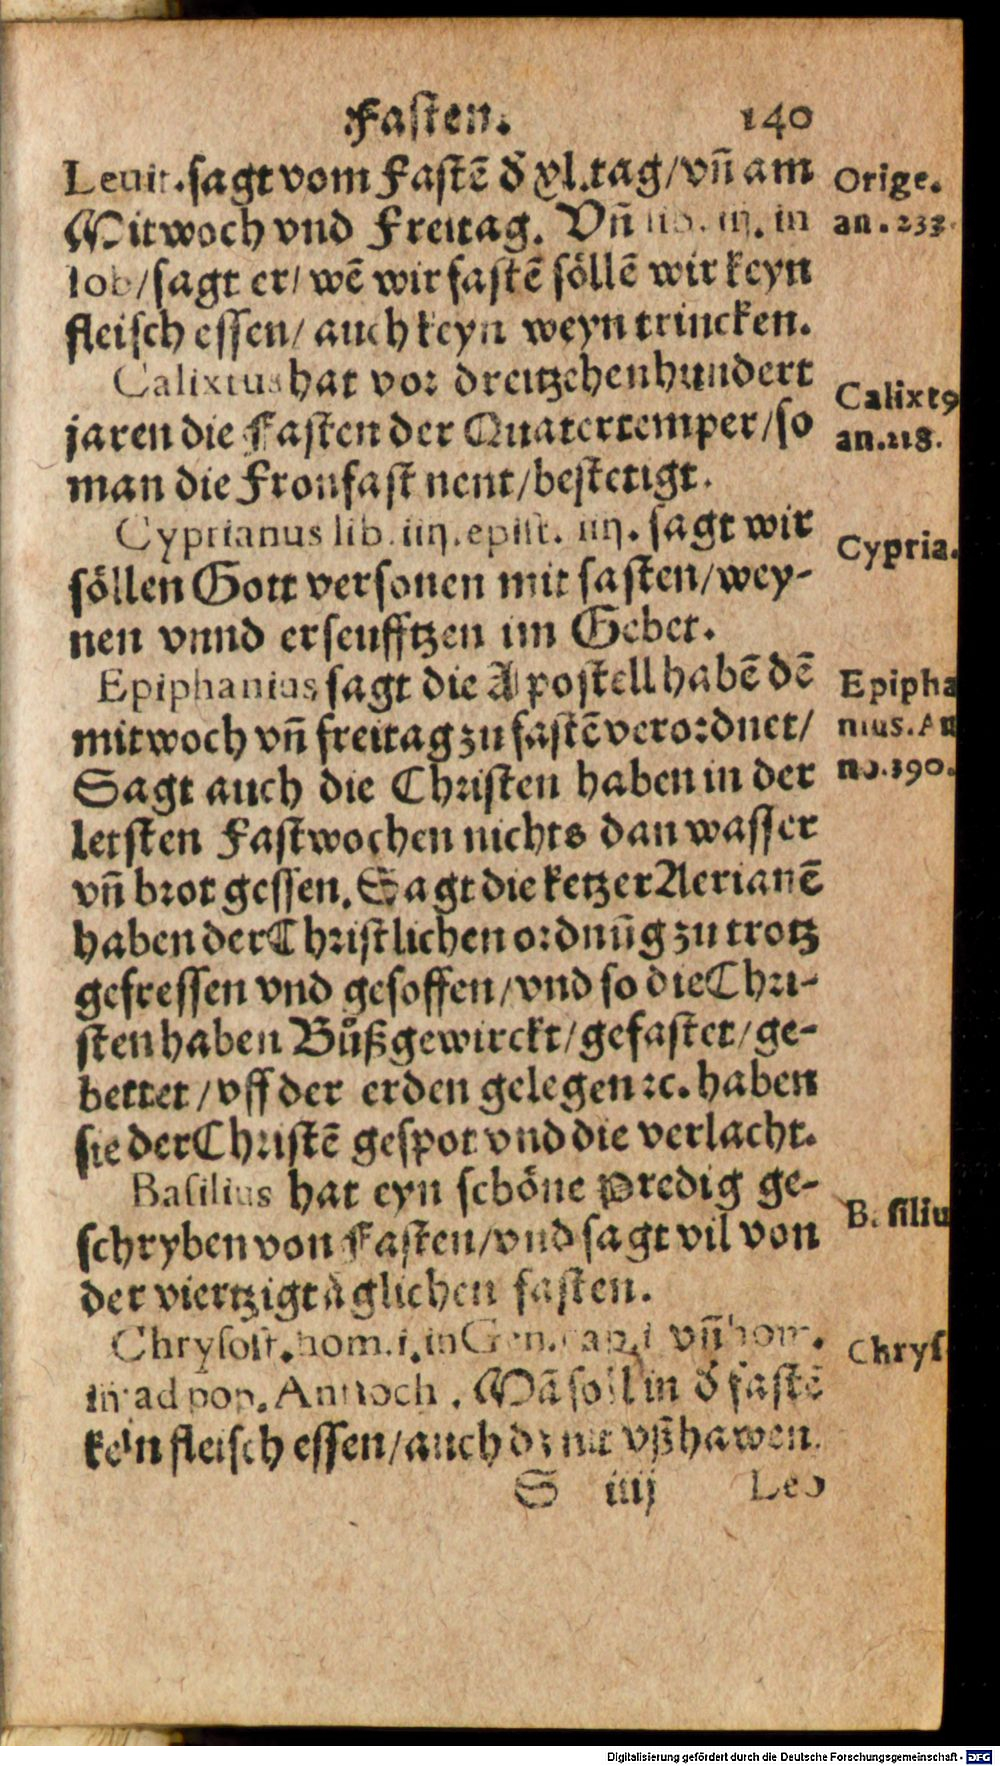 Fasten. 140
Leuit. sagt vom Fastē d̄ xl. tag/ vñ am
Mitwoch vnd Freitag. Vñ lib. iij. in
Iob/ sagt er/ wē wir fastē söllē wir keyn
fleisch essen/ auch keyn weyn trincken.
Calixtus hat vor dreitzehenhundert
jaren die Fasten der Quatertemper/ so
man die Fronfast nent/ bestetigt.
Cyprianus lib. iiij. epist. iiij. sagt wir
söllen Gott versonen mit fasten/ wey-
nen vnnd erseufftzen im Gebet.
Epiphanius sagt die Apostell habē dē
mitwoch vñ freitag zu fastē verordnet/
Sagt auch die Christen haben in der
letsten Fastwochen nichts dan wasser
vñ brot gessen. Sagt die ketzer Aerianē
haben der Christlichen ordnūg zu trotz
gefressen vnd gesoffen/ vnd so die Chri-
sten haben Bůß gewirckt/ gefastet/ ge-
bettet/ vff der erden gelegen ꝛc. haben
sie der Christē gespot vnd die verlacht.
Basilius hat eyn schöne Predig ge-
schryben von Fasten/ vnd sagt vil von
der viertzigtäglichen fasten.
Chrysost. hom. i. in Gen. cap. i vñ hom.
iij ad pop. Antioch. Mā soll in d̄ fastē
kein fleisch essen/ auch dz nit vßhawen.
S iiij Leo
Orige.
an. 233.
Calixt9
an. 218.
Cypria.
Epipha
nius. An
no. 390.
Basiliu
Chrys
Digitalisierung gefördert durch die Deutsche Forschungsgemeinschaft - DFG